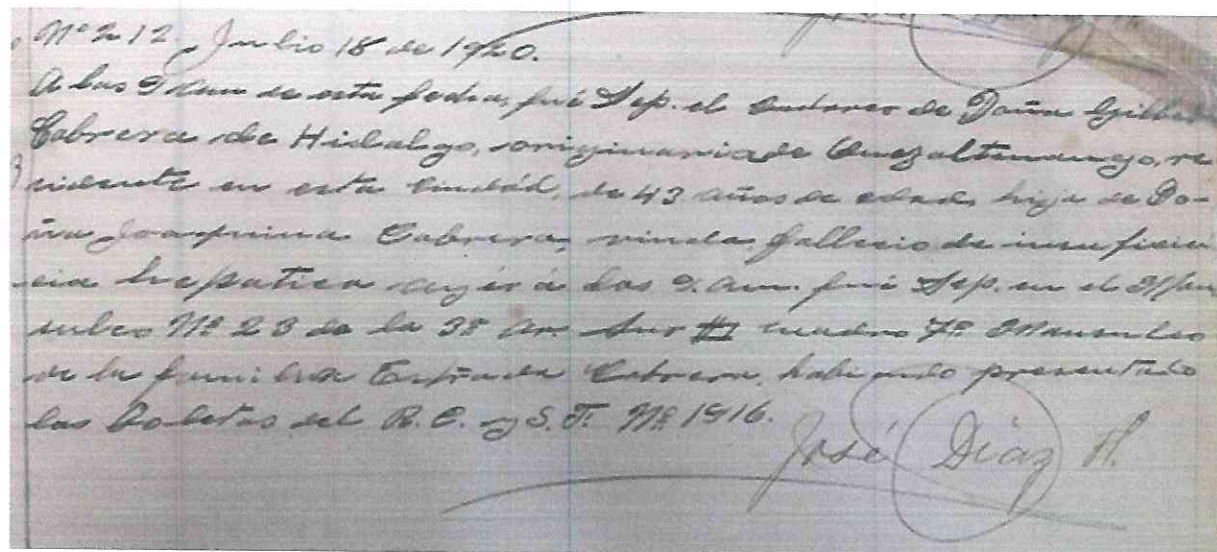 Nº 212. Julio 18 de 1920.
A las 9 am de esta fecha, fué Sep. el Cadaver de Doña
Cabrera de Hidalgo, originaria de Quezaltenango, re
sidente en esta Ciudad, de 43 años de edad, hija de Do-
ña Joaquina Cabrera, viuda fallecio de insuficien
cia hepatica ayér á las 9. am. fué Sep. en el Mau
suleo Nº 23 de la 3ª Av. Sur cuadro 7º Mausuleo
de la familia Estrada Cabrera, habiendo presentado
las Boletas del R. C. y S. T. Nº 1916.
José Díaz H.